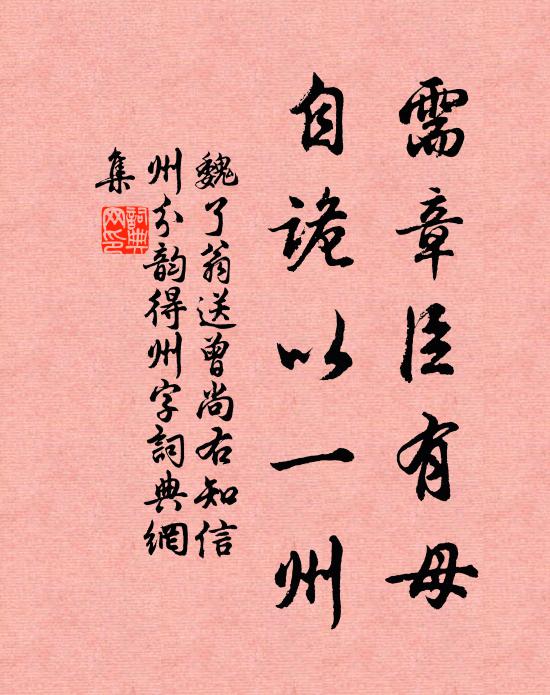 需章臣有母
自詭以一州
魏了翁送曾尚右知信
州分韵得州字詞典網
集
詞典
网印